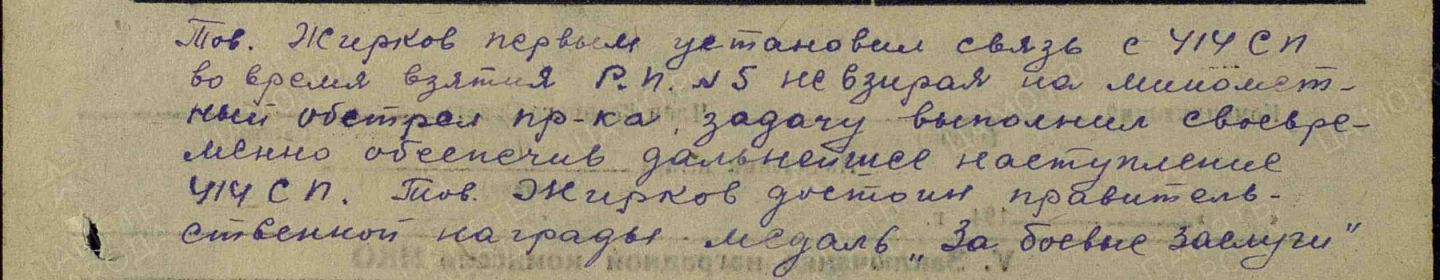 Тов. Жирков первым установил связь с 414 СП
во время взятия Р.П. №5 не взирая на миномет-
ный обстрел пр-ка, задачу выполнил своевре-
менно обеспечив дальнейшее наступление
414 СП. Тов. Жирков достоин правитель-
ственной награды медаль „За боевые заслуги"